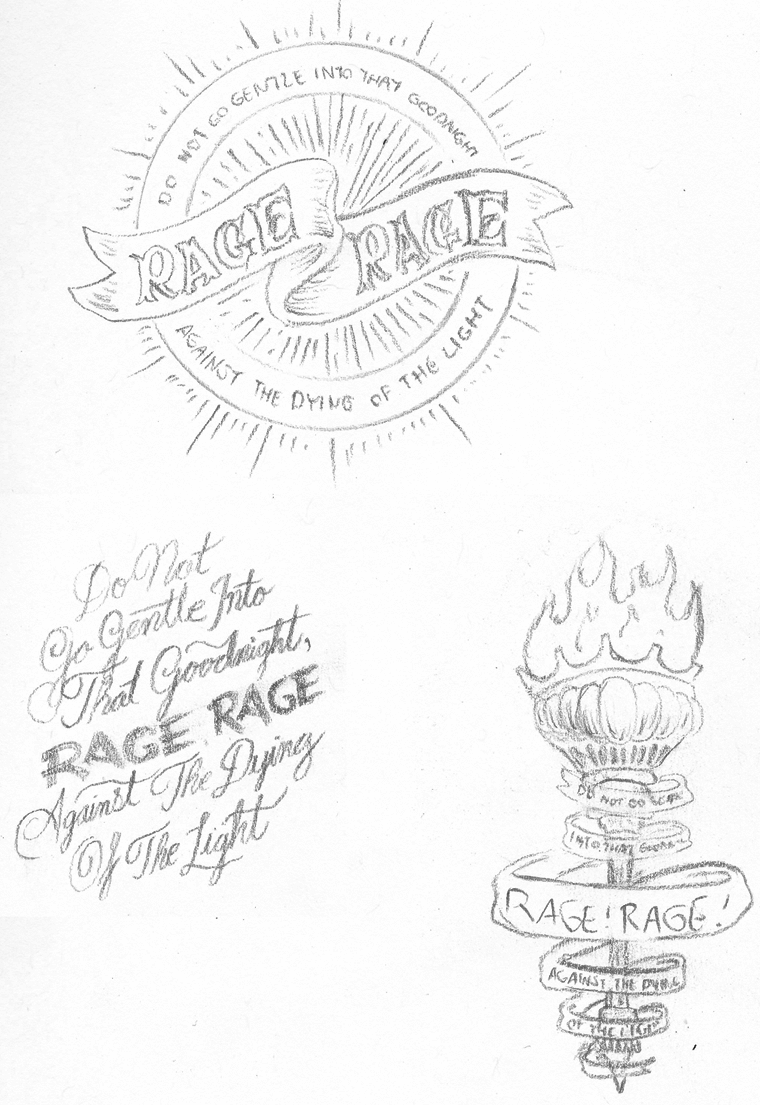 DO NOT GO GENTLE INTO THAT GOODNIGHT
RAGE RAGE
AGAINST THE DYING OF THE LIGHT
Do Not
Go Gentle Into
That Goodnight,
RAGE RAGE
Against The Dying
Of The Light
DO NOT GO
INTO THAT
RAGE! RAGE!
AGAINST THE DYING
OF THE LIGHT